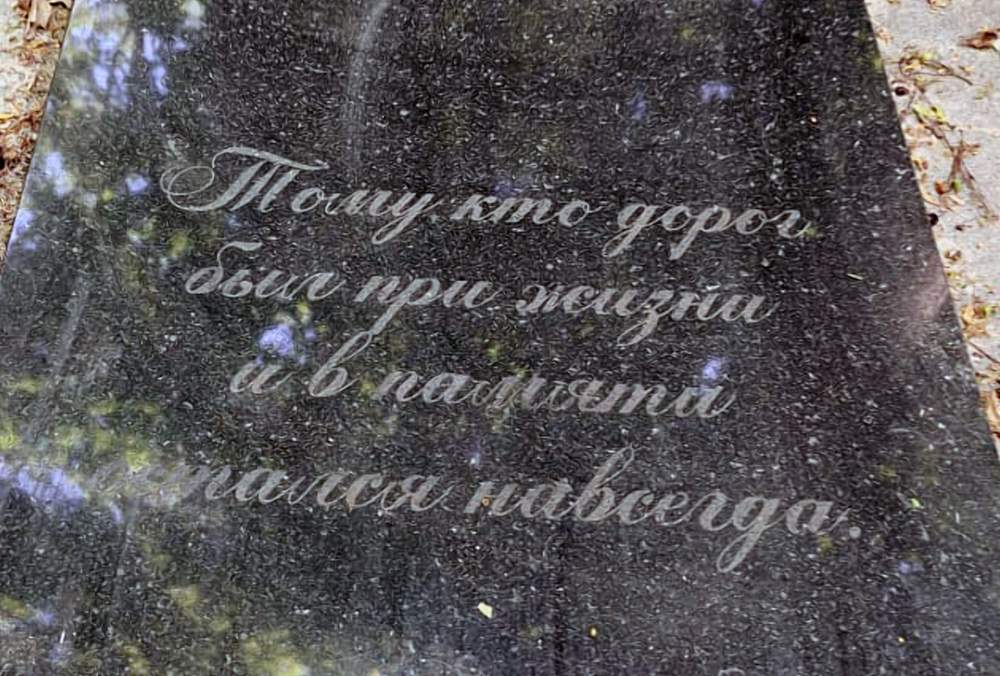 Тому кто дорог
был при жизни
и в памяти
остался навсегда.